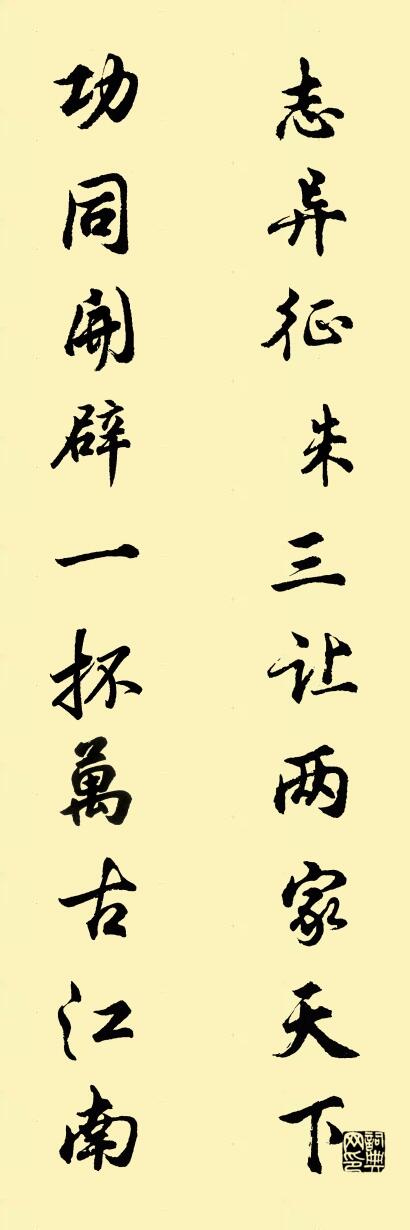 志异征朱三让两家天下
功同開辟一抔萬古江南
詞典网印